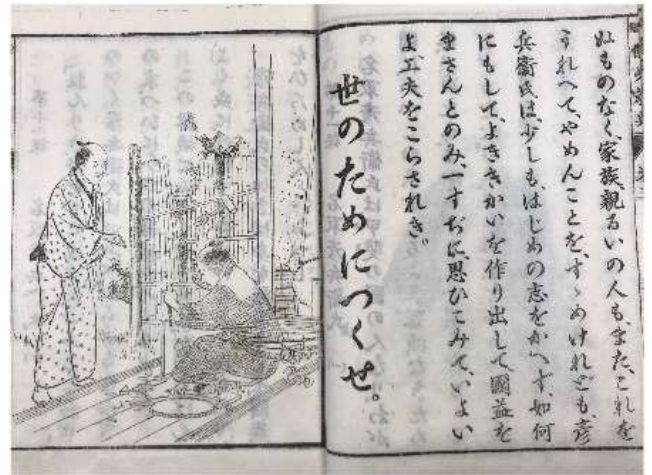 ぬものなく、家族親るいの人もまた、これを
うれへて、やめんことを、すゝめけれども、彦
兵衞氏は、少しも、はじめの志をかへず、如何
にもして、よききかいを作り出して、國益を
まさんとのみ、一すぢに、思ひこみて、いよい
よ工夫をこらされき。
世のためにつくせ。